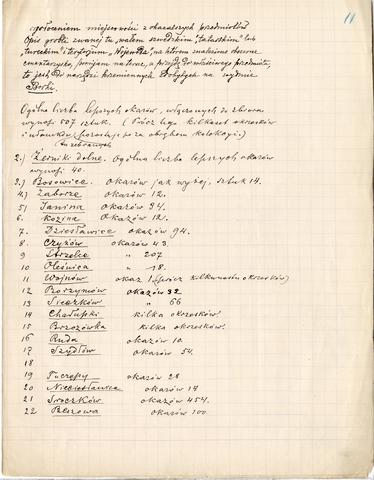 11
miejscowości z okazaszych przedmiotów
Opis grobli zwanej tu „wałem szwedzkim", tatarskim" lub
tureckim" i terytorjum „ na którem znalezione obszerne
cmentarzysko, pomijam na teraz, a przejdę do właściwego przedmiotu,
to jest, do narzędzi krzemiennych dobytych na wydmie
Borki.
Ogólna liczba lepszych okazów, włączonych do zbioru
wynosi 507 sztuk. (Prócz tego kilkaset okrzesków
i ułomków pozostaje poza obrębem kolekcyi.)
tu zebranych
2.) Żerniki dolne. Ogólna liczba lepszych okazów
wynosi 40.
3.) Bosowice. okazów jak wyżej, sztuk 14.
4.) Zaborze okazów 12.
5) Janina okazów 34.
6. Kozina okazów 12.
7. Dziesławice okazów 94.
8. Czyżów okazów 43
9 Strzelce " 207
10 Oleśnica " 18.
11 Wojnów okaz 1 (prócz kilkunastu okrzesków)
12 Borzymów okazów 32
13 Sieczków " 66
14 Chałupki kilka okrzesków!
15 Brzozówka kilka okrzesków!
16 Ruda okazów 10
17 Szydłów okazów 54.
18
19 Tuczępy okazów 28
20 Nieciesławice okazów 14
21 Sroczków okazów 454.
22 Rzeszowa okazów 100.